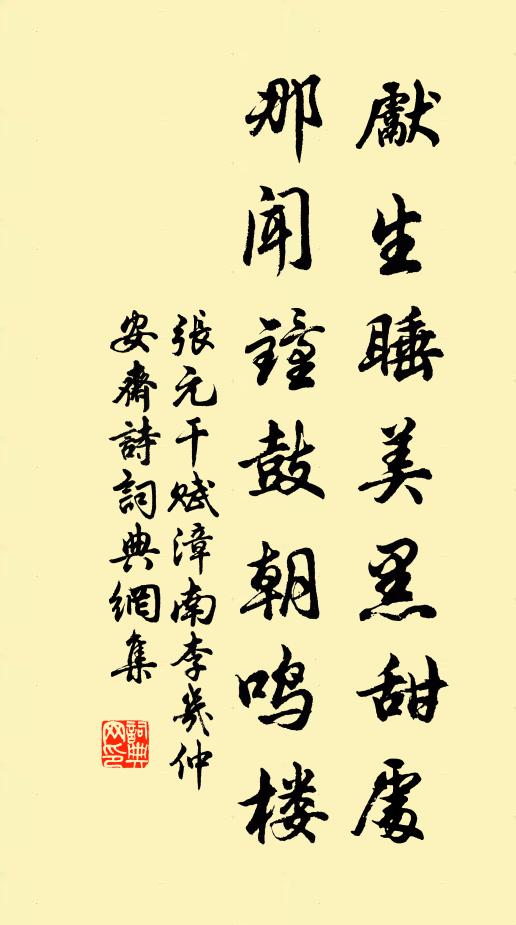 獻生睡美黑甜處
那闻鐘鼓朝鸣楼
張元干赋漳南李幾仲
安齋詩詞典網集
詞典
网印